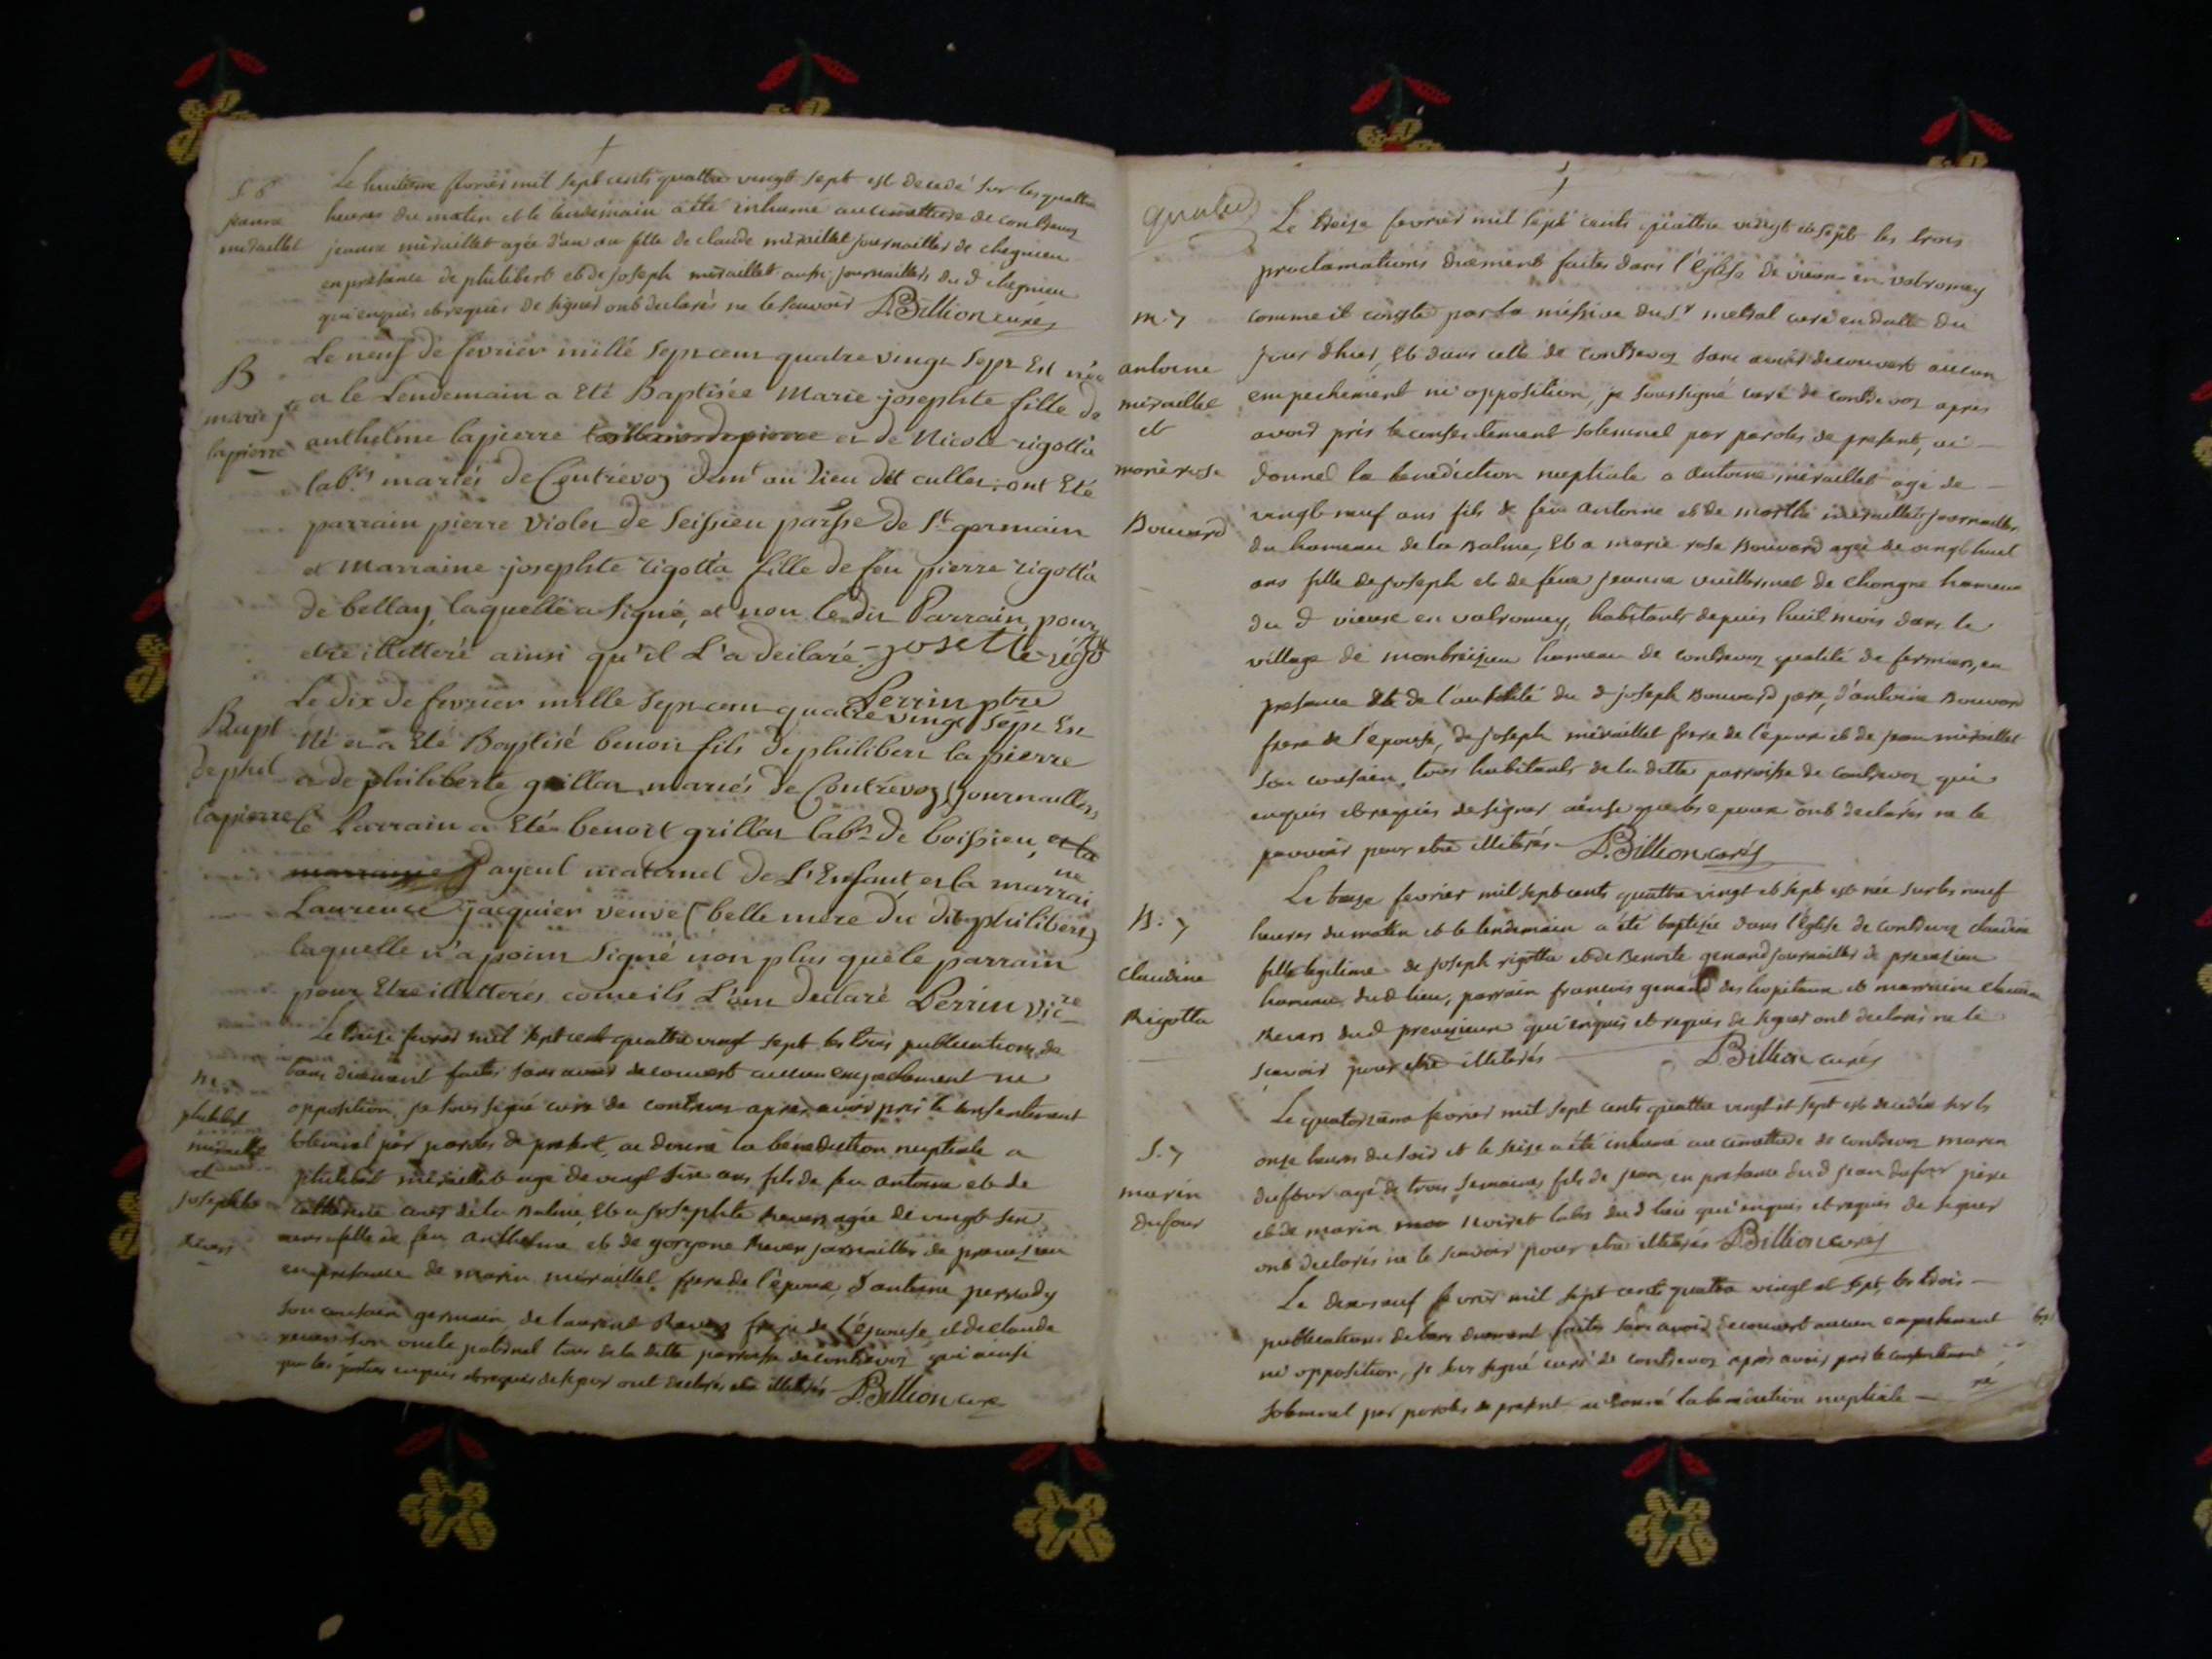 S 8
jeanne
miraillet
Le huitième fevrier mil sept cents quattre vingt sept est decedé sur les quattre
heures du matin et le lendemain a été inhumé au cimettiere de contrevoz
jeanne miraillet agée d'un an fille de claude miraillet journaillier de chegnieu
en présence de philibert et de joseph miraillet aussi journailliers du d chegnieu
qui enquis et requis de signer ont declarés ne le scavoir D. Billion curé
B
marie jte
lapierre
Le neuf de fevrier mille sept cem quatre vingt Sept Est née
et le Lendemain a Eté Baptisée Marie josephte fille de
anthelme lapierre et de Nicole rigotta
labrs mariés de Contrevoz dem au Lieu dit cullet. ont Eté
parrain pierre violet de Seissieu parsse de St germain
et Marraine josephte rigotta fille de feu pierre rigotta
de bellay, laquelle a Signé, et non le dit Parrain, pour
etre illitteré ainsi qu'il L'a declaré
Perrin ptre
Bapt
de phil
lapierre
Le dix de fevrier mille Sept cem quatre vingt Sept Est
Né et a Eté Baptisé benoit fils de philibert la pierre
et de philiberte grillat mariés de Contrévoz journailliers
le Parrain a Eté benoit grillat labr de boissieu, et la
marraine ayeul maternel de L'Enfant et la marrai
ne
Laurence jacquier veuve (belle mere du dit philibert)
laquelle n'a point Signé non plus que le parrain
pour Etre illitterés comeils L'ont declaré Perrin vicre
m.
philibert
miraillet
et
josephte
Revers
Le treise fevrier mil sept cent quattre vingt sept les trois publications de
bans duement faites sans avoir decouvert aucun empechement ne
opposition, je sous signé curé de contrevoz apres avoir pris le consentement
solemnel par paroles de present, ai donné la bénédiction nuptiale a
philibert miraillet agé de vingt six ans fils de feu antoine et de
de la Balme, et a josephte Revers agée de vingt six
ans fille de feu anthelme et de gorgone Revers journaillier de
en présence de marin miraillet frere de l'epoux d'antoine perrody
son cousin germain, de laurent Revers frere de l'epouse, et de claude
revers son oncle paternel tous de la ditte parroisse de contrevoz qui ainsi
que les parties enquis et requis de signer ont declarés etre illiterés D. Billion curé
quatre
m. 7
antoine
miraillet
et
marie rose
Bouvard
Le treize fevrier mil sept cents quattre vingt et sept les trois
proclamations duement faites dans l'Eglise de vieux en valromey
comme il conste par la missive du Sr curé en datte du
jour d'hier, et dans celle de contrevoz sans avoir decouvert aucun
empechement ni opposition, je soussigné curé de contrevoz apres
avoir pris le consentement solemnel par paroles de present, ai
donné la benediction nuptiale a antoine miraillet agé de
vingt neuf ans fils de feu antoine et de marthe miraillet journaillier
du hameau de la Balme, et a marie rose Bouvard agée de vingt huit
ans fille de joseph et de feue jeanne vuillermet de Chongne hameau
du d vieux en valromey, habitants depuis huit mois dans le
village de montbreizieu hameau de contrevoz qualité de fermiers, en
presence et de l'autorité du d joseph Bouvard pere, d'antoine Bouvard
frere de l'épouse, de joseph miraillet frere de l'epoux et de jean miraillet
son cousin, tous habitants de la ditte parroisse de contrevoz qui
enquis et requis de signer ainsi que les epoux ont declarés ne le
pouvoir pour etre illiterés D. Billion curé
B. 7
Claudine
Rigotta
Le treize fevrier mil sept cents quattre vingt et sept est née sur les neuf
heures du matin et le lendemain a été baptisée dans l'Eglise de contrevoz claudine
fille legitime de joseph rigotta et de Benoite genand journaillier de
hameau du d lieu, parrain françois genand des hopitaux et marraine claudine
Revers du d qui enquis et requis de signer ont declarés ne le
scavoir pour etre illiterés D. Billion curé
S. 7
marin
dufour
Le quatorzieme fevrier mil sept cents quattre vingt et sept est decedé sur les
onze heures du soir et le seize a été inhumé au cimettiere de contrevoz marin
dufour agé de trois semaines fils de jean, en presence du d jean dufour père
et de marin labr du d lieu qui enquis et requis de signer
ont declarés ne le scavoir pour etre illiterés D. Billion curé
Le dix neuf fevrier mil sept cents quattre vingt et sept, les trois
publications de bans duement faites sans avoir decouvert aucun empechement
ni opposition, je sous signé curé de contrevoz apres avoir pris le consentement
solemnel par paroles de present ai donné la benediction nuptiale